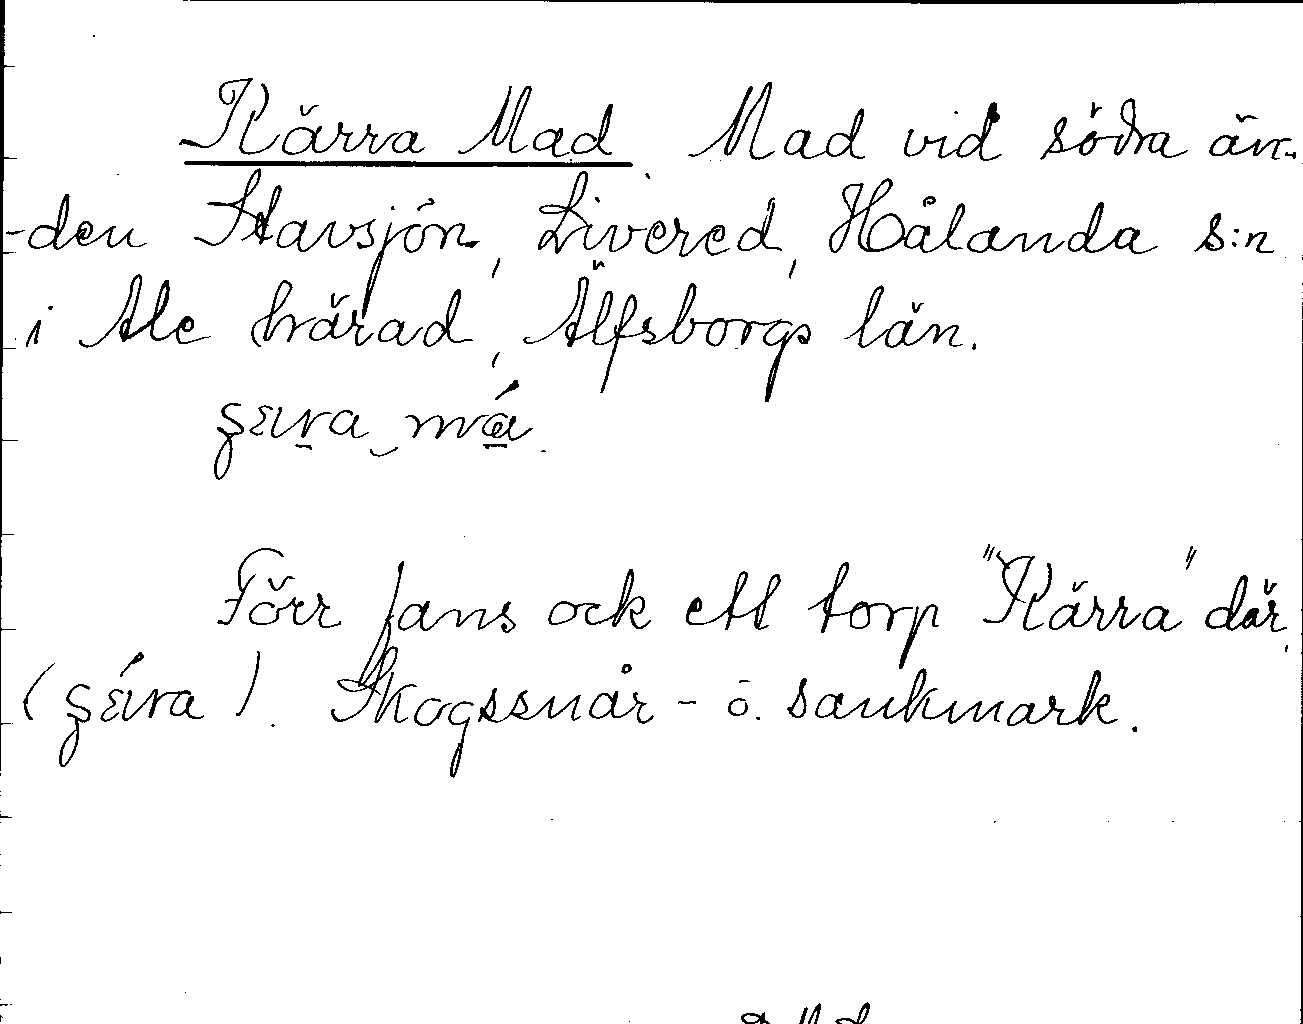 Kärra Mad. Mad vid södra än-
-den Stavsjön, Livered, Hålanda s:n
i Ale härad, Älfsborgs län.
Förr fans ock ett torp "Kärra" där
Skogssnår- o. sankmark.